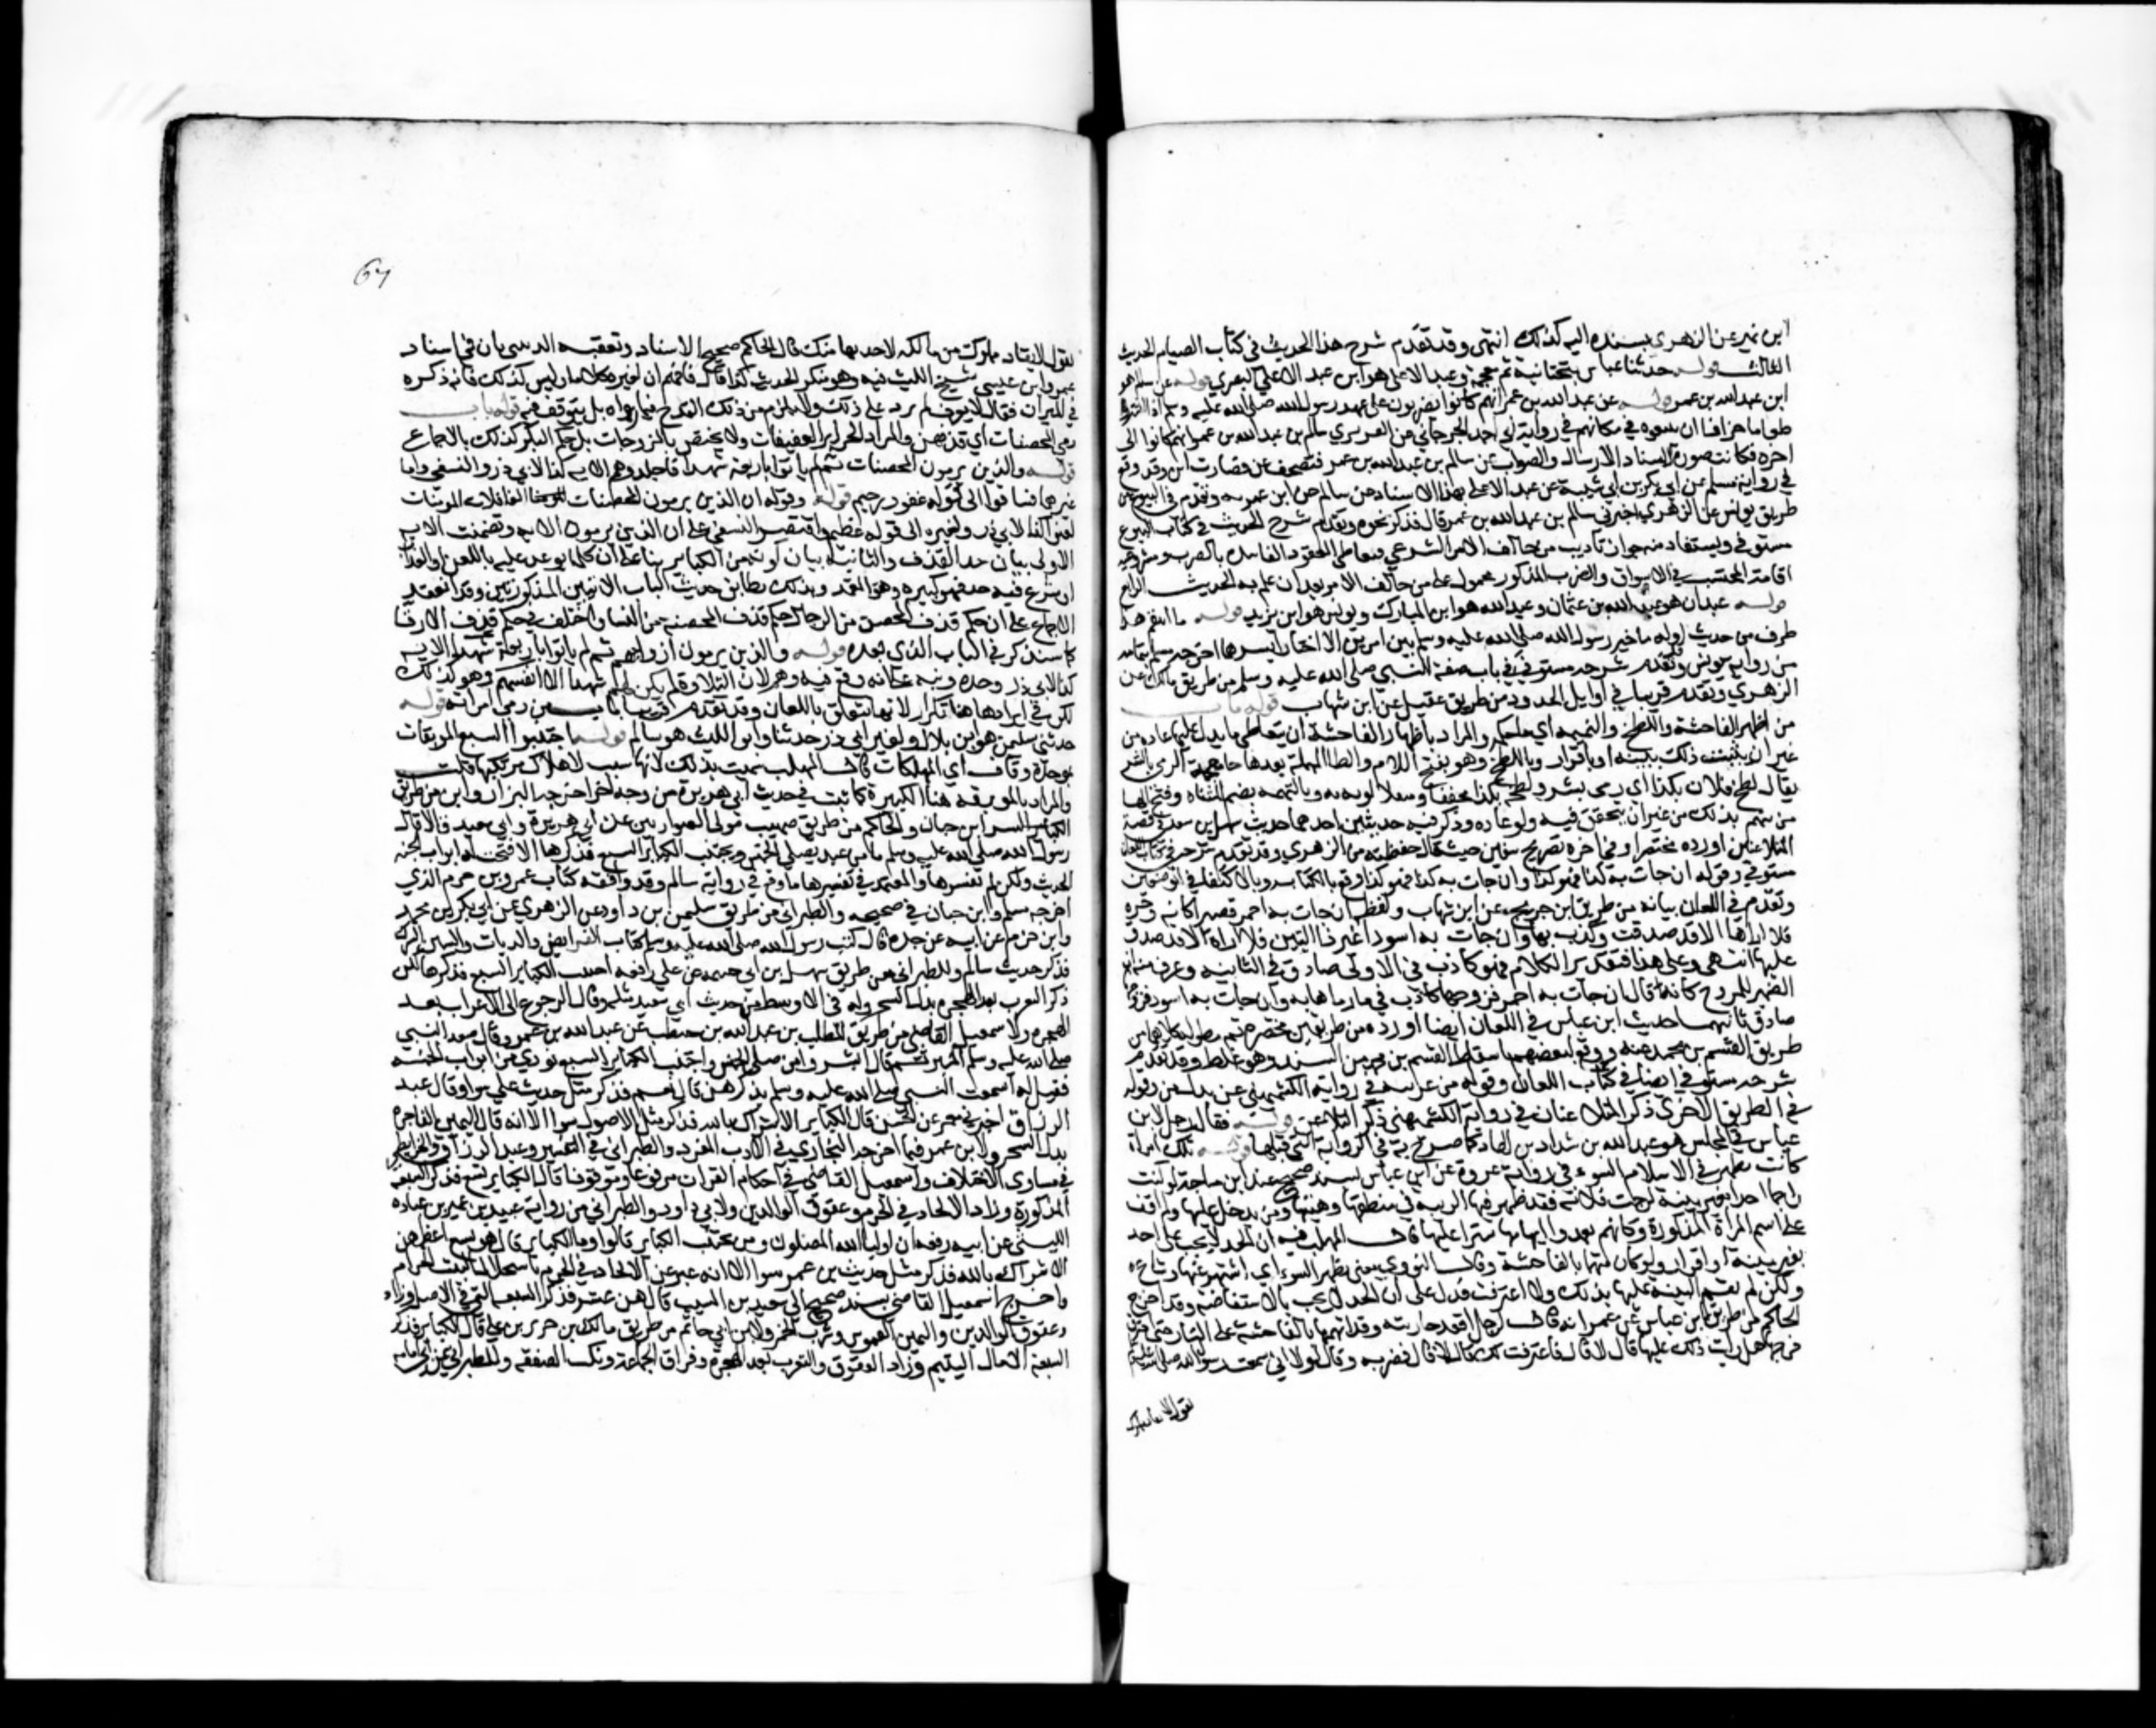 ابن نمير عن الزهري بسنده اليه كذلك انتهى وقد تقدم شرح هذا الحديث في كتاب الصيام الحديث
الثالث قوله حدثنا عياش بتحتانية ثم معجمة وعبد الاعلى هو ابن عبد الاعلى البصري قوله عن سالم هو
ابن عبد الله بن عمر قوله عن عبد الله بن عمر انهم كانوا يضربون على عهد رسول الله صلى الله عليه وسلم اذا اشتروا
طعاما جزافا ان يبيعوه في مكانهم في رواية ابي احمد الجرجاني عن الفربري سالم بن عبد الله بن عمر انهم كانوا الى
اخره فكانت صورة الاسناد الارسال والصواب عن سالم بن عبد الله بن عمر فتصحف عن فصارت ابن وقد وقع
في رواية مسلم عن ابي بكر بن ابي شيبة عن عبد الاعلى بهذا الاسناد عن سالم عن ابن عمر به وتقدم في البيوع من
طريق يونس عن الزهري اخبرني سالم بن عبد الله بن عمر قال فذكر نحوه وتقدم شرح الحديث في كتاب البيوع
مستوفى ويستفاد منه جواز تاديب من خالف الامر الشرعي فتعاطى العقود الفاسدة بالضرب ومشروعية
اقامة المحتسب في الاسواق والضرب المذكور محمول على من خالف الامر بعد ان علم به الحديث الرابع
قوله عبدان هو عبد الله بن عثمان وعبد الله هو ابن المبارك ويونس هو ابن يزيد قوله ما انتقم هذا
طرف من حديث اوله ما خير رسول الله صلى الله عليه وسلم بين امرين الا اختار ايسرهما اخرجه مسلم بتمامه
من رواية يونس وتقدم شرحه مستوفى في باب صفة النبي صلى الله عليه وسلم من طريق مالك عن
الزهري وتقدم قريبا في اوايل الحدود من طريق عقيل عن ابن شهاب قوله باب
من اظهر الفاحشة واللطخ والتهمة اي ما حكمه والمراد باظهار الفاحشة ان يتعاطى ما يدل عليها عادة من
غير ان يثبت ذلك ببينة او باقرار واللطخ هو بفتح اللام والطا المهملة بعدها خا معجمة الرمي بالشر
يقال لطخ فلان بكذا اي رمي بشر ولطخه بكذا مخففا ومثقلا لوثه به وبالتهمة بضم المثناة وفتح الها
من يتهم بذلك من غير ان يتحقق فيه ولو عادة وذكر فيه حديثين احدهما حديث سهل بن سعد في قصة
المتلاعنين اورده مختصرا وفي اخره تصريح سفين حيث قال حفظته من الزهري وقد تقدم شرحه في كتاب اللعان
مستوفى وقوله ان جات به كذا فهو كذا وان جات به كذا فهو كذا وقع بالكناية وبالاكتفا في الموضعين
وتقدم في اللعان بيانه من طريق ابن جريج عن ابن شهاب ولفظه ان جات به احمر قصيرا كانه وحرة
فلا اراها الا قد صدقت وكذب عليها وان جات به اسود اعين ذا اليتين فلا اراه الا قد صدق
عليها انتهى وعلى هذا فتقدير الكلام فهو كاذب في الاولى صادق في الثانية وعرف منه ان
الضمير للزوج كانه قال ان جات به احمر فزوجها كاذب فيما رماها به وان جات به اسود فزوجها
صادق ثانيهما حديث ابن عباس في اللعان ايضا اورده من طريقين مختصرة ثم مطولة كلاهما من
طريق القسم بن محمد عنه ووقع لبعضهم باسقاط القسم بن محمد من السند وهو غلط وقد تقدم
شرحه مستوفى ايضا في كتاب اللعان وقوله من غير بينة في رواية الكشميهني عن بدل من وقوله
في الطريق الاخرى ذكر المتلاعنان في رواية الكشميهني ذكر التلاعن قوله فقال رجل لابن
عباس في المجلس هو عبد الله بن شداد بن الهاد كما صرح به في الرواية التي قبلها قوله تلك امراة
كانت تظهر في الاسلام السوء في رواية عروة عن ابن عباس بسند صحيح عند ابن ماجة لو كنت
راجما احدا بغير بينة لرجمت فلانة فقد ظهر فيها الريبة في منطقها وهيئتها ومن يدخل عليها ولم اقف
على اسم المراة المذكورة وكانهم تعمدوا ابهامها سترا عليها قال المهلب فيه ان الحد لا يجب على احد
بغير بينة او اقرار ولو كان متهما بالفاحشة وقال النووي معنى تظهر السوء اي اشتهر عنها وشاع
ولكن لم تقم البينة عليها بذلك ولا اعترفت فدل على ان الحد لا يجب بالاستفاضة وقد اخرج
الحاكم من طريق ابن عباس عن عمر انه قال لرجل اقعد جاريته وقد اتهمها بالفاحشة على النار حتى احترق
فرجها هل رايت ذلك عليها قال لا قال فاعترفت لك قال لا قال فضربه وقال لولا اني سمعت رسول الله صلى الله عليه وسلم
يقول لا يقاد مملوك
67
يقول لا يقاد مملوك من مالكه لاحد بها منك قال الحاكم صحيح الاسناد وتعقبه الذهبي بان في اسناده
عمرو ابن عيسى شيخ الليث فيه وهو منكر الحديث كذا قال فاوهم ان لغيره كلاما وليس كذلك فانه ذكره
في الميزان فقال لا يعرف لم يزد على ذلك ولا يلزم من ذلك القدح فيما رواه بل يتوقف فيه قوله باب
رمي المحصنات اي قذفهن والمراد الحراير العفيفات ولا يختص بالزوجات بل حكم البكر كذلك بالاجماع
قوله والذين يرمون المحصنات ثم لم ياتوا باربعة شهدا فاجلدوهم الاية كذا لابي ذر والنسفي واما
غيرهما فساقوا الى قوله غفور رحيم قوله وقوله ان الذين يرمون المحصنات الغافلات المومنات
لعنوا كذا لابي ذر ولغيره الى قوله عظيم واقتصر النسفي على ان الذين يرمون الاية وتضمنت الاية
الاولى بيان حد القذف والثانية بيان كونه من الكباير بنا على ان كل ما توعد عليه باللعن او العذاب
او شرع فيه حد فهو كبيرة وهو المعتمد وبذلك يطابق حديث الباب الايتين المذكورتين وقد انعقد
الاجماع على ان حكم قذف المحصن من الرجال حكم قذف المحصنة من النسا واختلف في حكم قذف الارقا
كما سنذكر في الباب الذي بعده قوله والذين يرمون ازواجهم ثم لم ياتوا باربعة شهدا الاية
كذا لابي ذر وحده ونبه على انه وقع فيه وهم لان التلاوة ولم يكن لهم شهدا الا انفسهم وهو كذلك
لكن في ايرادها هنا تكرار لانها تتعلق باللعان وقد تقدم قريبا باب من رمى امراته قوله
حدثني سليمن هو ابن بلال ولغير ابي ذر حدثنا وابو الليث هو سالم قوله اجتنبوا السبع الموبقات
بموحدة وقاف اي المهلكات قال المهلب سميت بذلك لانها سبب لاهلاك مرتكبها قلت
والمراد بالموبقة هنا الكبيرة كما ثبت في حديث ابي هريرة من وجه اخر اخرجه البزار وابن المنذر من طريق
رسول الله صلى الله عليه وسلم ما من عبد يصلي الخمس ويجتنب الكباير السبع فذكرها الا فتحت له ابواب الجنة
الحديث ولكن لم يفسرها والمعتمد في تفسيرها ما وقع في رواية سالم وقد وافقه كتاب عمرو بن حزم الذي
اخرجه مسلم وابن حبان في صحيحه والطبراني من طريق سليمن بن داود عن الزهري عن ابي بكر بن محمد
وابن حزم عن ابيه عن جده قال كتب رسول الله صلى الله عليه وسلم كتاب الفرايض والديات والسنن
فذكر حديث سالم وللطبراني من طريق سهل بن ابي حثمة عن علي رفعه اجتنب الكباير السبع فذكرها لكن
ذكر التعرب بعد الهجرة بدل السحر وله في الاوسط من حديث ابي سعيد مثله وقال الرجوع الى الاعراب بعد
الهجرة ولاسمعيل القاضي من طريق المطلب بن عبد الله بن حنطب عن عبد الله بن عمرو قال صعد النبي
صلى الله عليه وسلم المنبر ثم قال ابشروا من صلى الخمس واجتنب الكباير السبع نودي من ابواب الجنة
فقيل له اسمعت النبي صلى الله عليه وسلم يذكرهن قال نعم فذكر مثل حديث علي سوا وقال عبد
الرزاق اخبرني معمر عن الحسن قال الكباير الاشراك بالله فذكر مثل الاصول سوا الا انه قال اليمين الفاجرة
بدل السحر ولابن عمر فيما اخرجه البخاري في الادب المفرد والطبراني في التفسير وعبد الرزاق والخرايطي
في مساوي الاخلاق واسمعيل القاضي في احكام القران مرفوعا وموقوفا قال الكباير تسع فذكر السبعة
المذكورة وزاد الالحاد في الحرم وعقوق الوالدين ولابي داود والطبراني من رواية عبيد بن عمير بن قتادة
الليثي عن ابيه رفعه ان اوليا الله المصلون ومن يجتنب الكباير قالوا وما الكباير قال هن تسع اعظمهن
الاشراك بالله فذكر مثل حديث بن عمر سوا الا انه عبر عن الالحاد في الحرم باستحلال البيت الحرام
واخرج اسمعيل القاضي بسند صحيح الى سعيد بن المسيب قال هن عشر فذكر السبعة التي في الاصل وزاد
وعقوق الوالدين واليمين الغموس وشرب الخمر ولابن ابي حاتم من طريق مالك بن حريث عن علي قال الكباير فذكر
السبعة الا مال اليتيم وزاد العقوق والتعرب بعد الهجرة وفراق الجماعة ونكث الصفقة وللطبراني عن ابي امامة